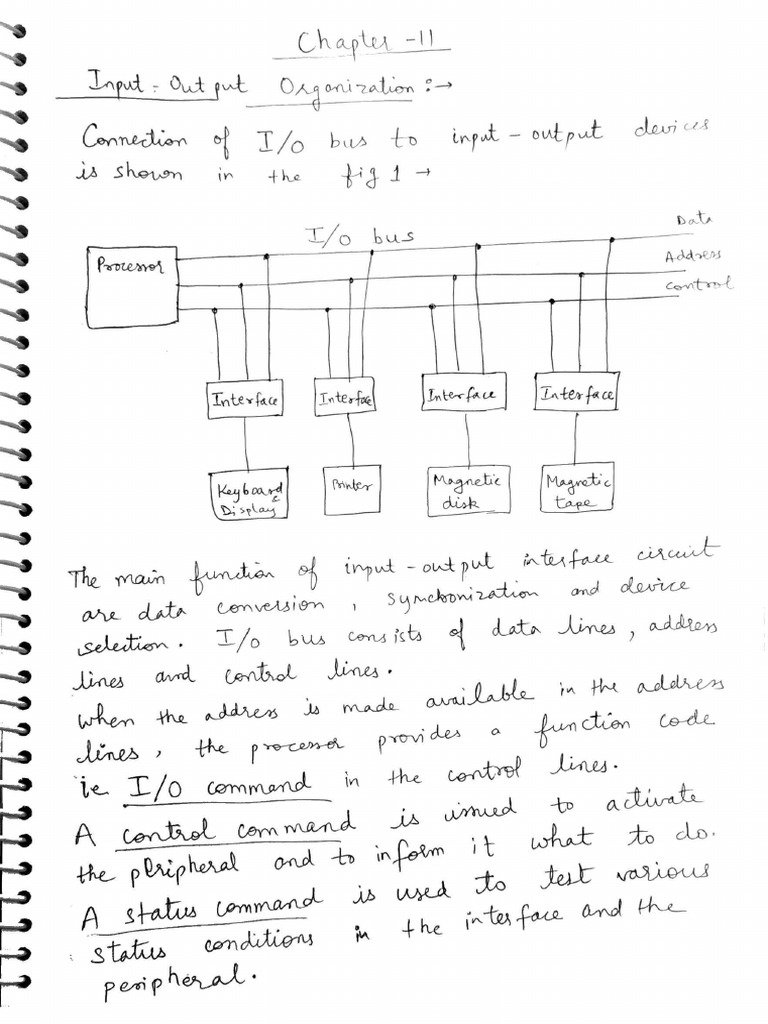 Chapter -11
Input - Output Organization :→
Connection of I/O bus to input - output devices
is shown in the fig 1 →
I/O bus
Data
Address
Control
Processor
Interface
Interface
Interface
Interface
Keyboard & Display
Printer
Magnetic disk
Magnetic tape
The main function of input - output interface circuit
are data conversion, synchonization and device
selection. I/o bus consists of data lines, address
lines and control lines.
when the address is made available in the address
lines, the processor provides a function code
ie I/O command in the control lines.
A control command is issued to activate
the peripheral and to inform it what to do.
A status command is used to test various
status conditions in the interface and the
peripheral.